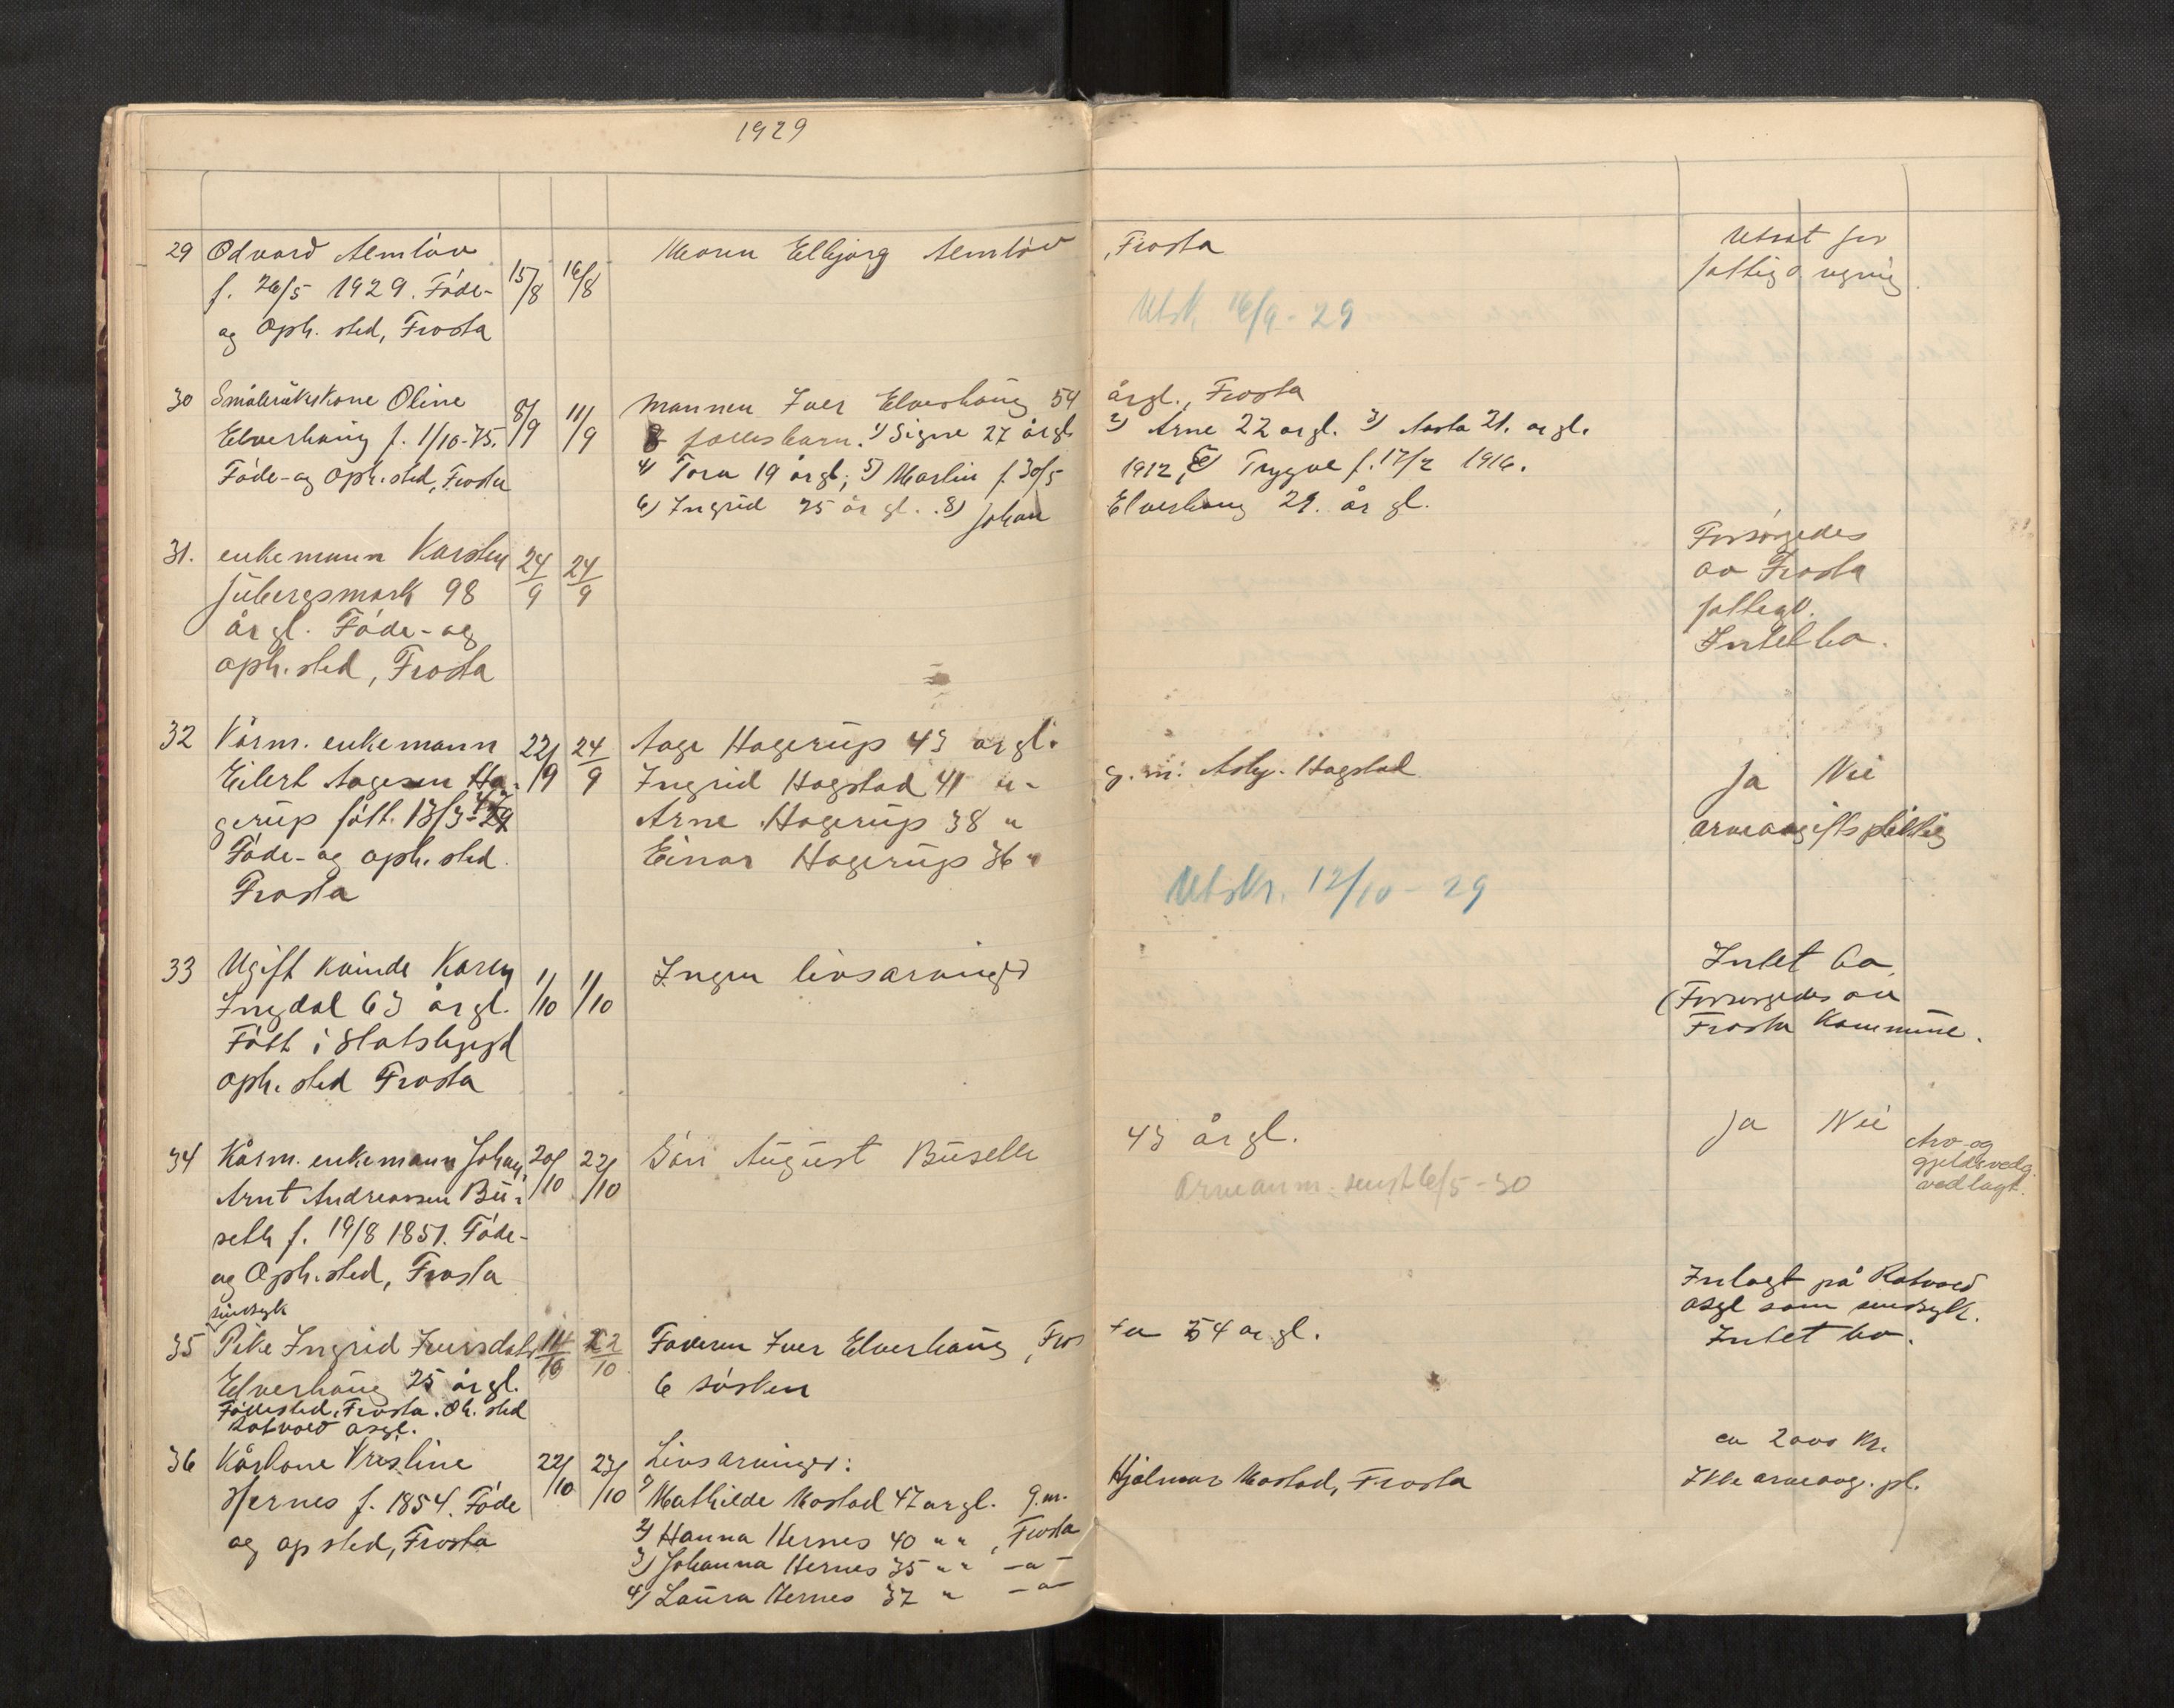 1929
29 Odvard Almlöv 15/8 16/8 Moren Elbjørg Almlöv, Frosta
f. 26/5 1929. Föde-
og Oph. sted, Frosta
Utsk. 16/9 - 29
Utsat for
fattig
30 Småbrukskone Oline 8/9 11/9 Mannen Iver Elverhaug 54 årgl., Frosta
Elverhaug f. 1/10-75. 8 fællesbarn. 1) Signe 27 årgl 2) Arne 22 årgl. 3) Aasta 21. årgl.
Föde- og Oph. sted, Frosta 4) Tora 19 årgl; 5) Marlin f. 30/5 1912, Trygve f. 17/2 1916.
6) Ingrid 25 år gl. 8) Johan Elverhaug 29. år gl.
31. enkemann Karsten 24/9 24/9
Jubergsmark 98
år gl. Föde- og
oph. sted, Frosta
Forsörgedes
av Frosta
fattigv.
Intet bo.
32 Kårm. enkemann 22/9 24/9 Aage Hagerup 43 årgl.
Eilert Aagesen Ha- Ingrid Hogstad 41 " g. m. Asbj. Hogstad
gerup fött. 13/3- Arne Hagerup 38 "
Föde- og oph. sted. Einar Hagerup 36 "
Frosta
Utskr. 12/10 - 29
Ja Nei
arveavgiftspliktig
33 Ugift kvinde Karen 1/10 1/10 Ingen livsarvinger
Ingdal 63 årgl.
Fött i Statsbygd
oph. sted Frosta
Intet bo,
(Forsørgedes av
Frosta Kommune.
34 Kårm. enkemann Johan 20/10 22/10 Sön August Buseth 43 årgl.
Arnt Andreassen Bu-
seth f. 19/8 1851. Föde-
og Oph. sted, Frosta
Arveanm. sendt 6/5 - 30
Ja Nei
Arv- og
gjeldsvedg.
vedlagt.
sindsyk
35 Pike Ingrid Iversdatr 22/10 Faderen Iver Elverhaug, Frosta 54 årgl.
Elverhaug 25 årgl. 6 søsken
Födested, Frosta. Oh. sted
Rotvold asyl.
Inlagt på Rotvold
asyl som sindsyk.
Intet bo.
36 Kårkone Kristine 22/10 23/10 Livsarvinger:
Hernes f. 1854. Föde 1) Mathilde Mostad 47 årgl. g.m. Hjalmar Mostad, Frosta
og op sted, Frosta 2) Hanna Hernes 40 " ", Frosta
3) Johanna Hernes 35 " " -"-
4) Laura Hernes 37 " -"-
ca 2000 Kr.
Ikke arveavg. pl.